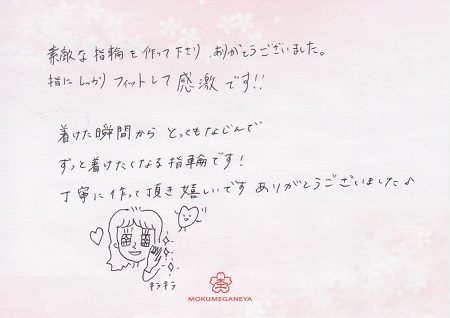 素敵な指輪を作って下さり、ありがとうございました。
指にしっかりフィットして感激です!!
着けた瞬間から とってもなじんで
ずっと着けたくなる指輪です!
丁寧に作って頂き嬉しいです ありがとうございました♪
キラキラ
MOKUMEGANEYA